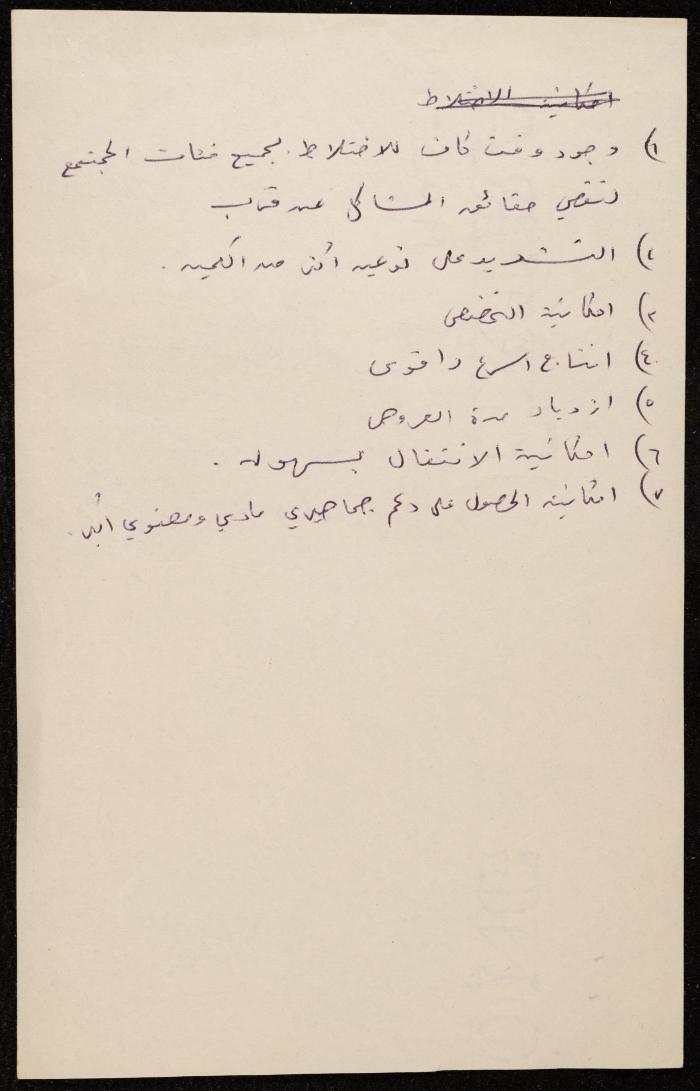 امكانية الاختلاط
١) وجود وقت كاف للاختلاط بجميع فئات المجتمع
لتقصي حقائق المشاكل عن قرب
٢) التشديد على نوعيه اكثر من الكميه .
٣) امكانية التخصص
٤) انتاج اسرع واقوى
٥) ازدياد مدة العروض
٦) امكانية الانتقال بسهوله .
٧) امكانية الحصول على دعم جماهيري مادي ومعنوي اكبر .